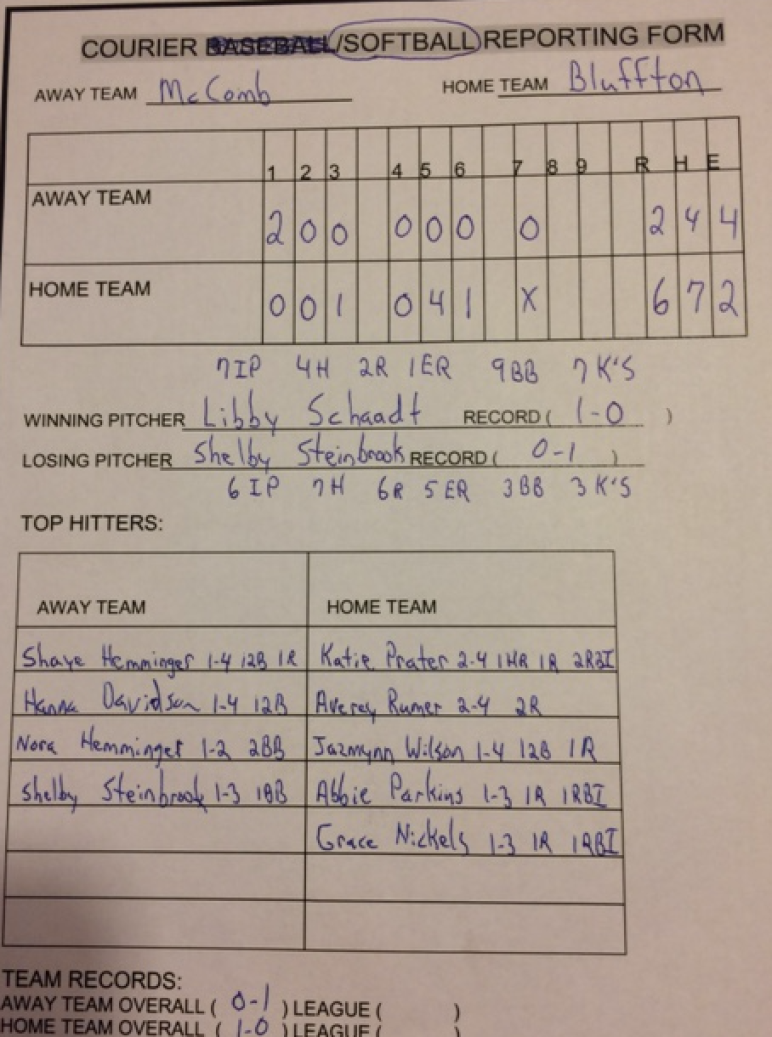 COURIER BASEBALL/SOFTBALL REPORTING FORM
AWAY TEAM McComb HOME TEAM Bluffton
1 2 3 4 5 6 7 8 9 R H E
AWAY TEAM 2 0 0 0 0 0 0 2 4 4
HOME TEAM 0 0 1 0 4 1 X 6 7 2
7IP 4H 2R 1ER 9BB 7K'S
WINNING PITCHER Libby Schaadt RECORD ( 1-0 )
LOSING PITCHER Shelby Steinbrook RECORD ( 0-1 )
6IP 7H 6R 5ER 3BB 3K'S
TOP HITTERS:
AWAY TEAM HOME TEAM
Shaye Hemminger 1-4 12B 1R Katie Prater 2-4 1HR 1R 2RBI
Hanna Davidson 1-4 12B Averey Rumer 2-4 2R
Nora Hemminger 1-2 2BB Jazmynn Wilson 1-4 12B 1R
Shelby Steinbrook 1-3 1BB Abbie Parkins 1-3 1R 1RBI
Grace Nickels 1-3 1R 1RBI
TEAM RECORDS:
AWAY TEAM OVERALL ( 0-1 ) LEAGUE ( )
HOME TEAM OVERALL ( 1-0 ) LEAGUE ( )